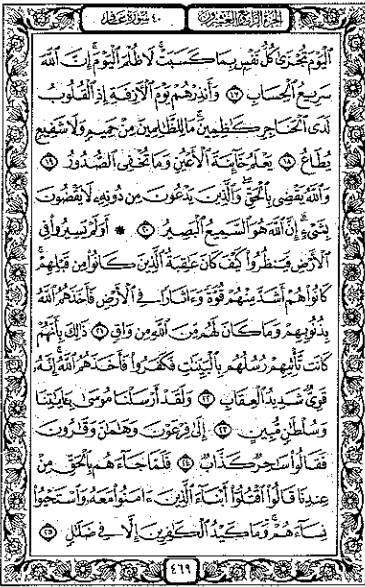 الجزء الرابع والعشرون ٤٠ سورة غافر
ٱلْيَوْمَ تُجْزَىٰ كُلُّ نَفْسٍۭ بِمَا كَسَبَتْ ۚ لَا ظُلْمَ ٱلْيَوْمَ ۚ إِنَّ ٱللَّهَ
سَرِيعُ ٱلْحِسَابِ ١٧ وَأَنذِرْهُمْ يَوْمَ ٱلْءَازِفَةِ إِذِ ٱلْقُلُوبُ
لَدَى ٱلْحَنَاجِرِ كَـٰظِمِينَ ۚ مَا لِلظَّـٰلِمِينَ مِنْ حَمِيمٍ وَلَا شَفِيعٍ
يُطَاعُ ١٨ يَعْلَمُ خَآئِنَةَ ٱلْأَعْيُنِ وَمَا تُخْفِى ٱلصُّدُورُ ١٩
وَٱللَّهُ يَقْضِى بِٱلْحَقِّ ۖ وَٱلَّذِينَ يَدْعُونَ مِن دُونِهِۦ لَا يَقْضُونَ
بِشَىْءٍ ۗ إِنَّ ٱللَّهَ هُوَ ٱلسَّمِيعُ ٱلْبَصِيرُ ٢٠ * أَوَلَمْ يَسِيرُوا۟ فِى
ٱلْأَرْضِ فَيَنظُرُوا۟ كَيْفَ كَانَ عَـٰقِبَةُ ٱلَّذِينَ كَانُوا۟ مِن قَبْلِهِمْ ۚ
كَانُوا۟ هُمْ أَشَدَّ مِنْهُمْ قُوَّةً وَءَاثَارًا فِى ٱلْأَرْضِ فَأَخَذَهُمُ ٱللَّهُ
بِذُنُوبِهِمْ وَمَا كَانَ لَهُم مِّنَ ٱللَّهِ مِن وَاقٍ ٢١ ذَٰلِكَ بِأَنَّهُمْ
كَانَت تَّأْتِيهِمْ رُسُلُهُم بِٱلْبَيِّنَـٰتِ فَكَفَرُوا۟ فَأَخَذَهُمُ ٱللَّهُ ۚ إِنَّهُۥ
قَوِىٌّ شَدِيدُ ٱلْعِقَابِ ٢٢ وَلَقَدْ أَرْسَلْنَا مُوسَىٰ بِـَٔايَـٰتِنَا
وَسُلْطَـٰنٍ مُّبِينٍ ٢٣ إِلَىٰ فِرْعَوْنَ وَهَـٰمَـٰنَ وَقَـٰرُونَ
فَقَالُوا۟ سَـٰحِرٌ كَذَّابٌ ٢٤ فَلَمَّا جَآءَهُم بِٱلْحَقِّ مِنْ
عِندِنَا قَالُوا۟ ٱقْتُلُوٓا۟ أَبْنَآءَ ٱلَّذِينَ ءَامَنُوا۟ مَعَهُۥ وَٱسْتَحْيُوا۟
نِسَآءَهُمْ ۚ وَمَا كَيْدُ ٱلْكَـٰفِرِينَ إِلَّا فِى ضَلَـٰلٍ ٢٥
٤٦٩